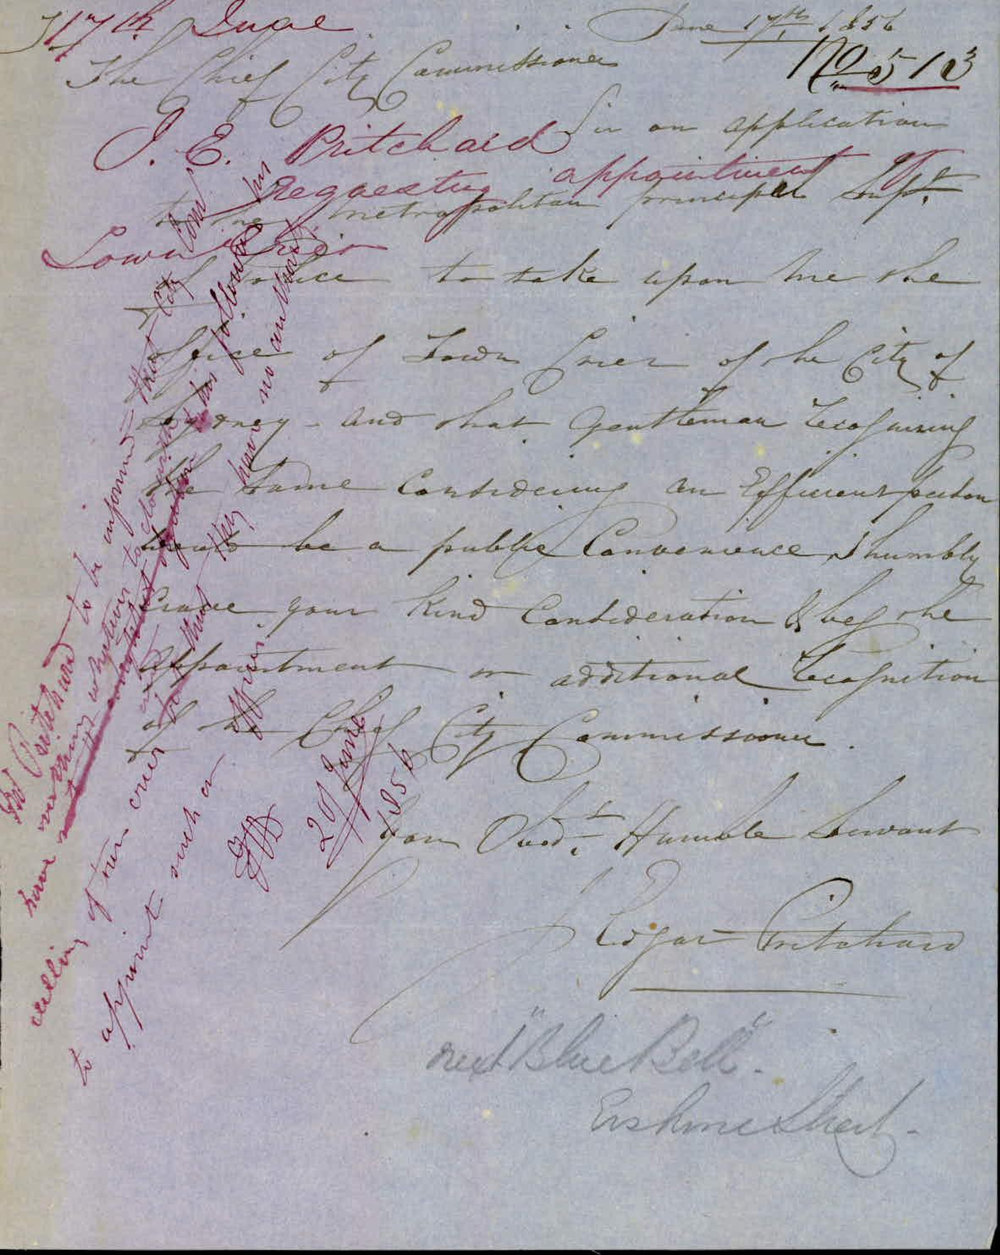 17th June
June 17th 1856
No 513
The Chief City Commissioner
J. E. Pritchard
Sir on application
Requesting appointment of
to the Metropolitan principal Supt.
Town Crier
of Police to take upon me the
office of Town Crier of the City of
Sydney - and that Gentleman recognising
the same considering an Efficient person
would be a public Convenience I humbly
Crave your Kind Consideration & beg the
appointment or additional recognition
of the Chief City Commissioner.
Your Obedt. Humble Servant
J Edgar Pritchard
next "Blue Bell".
Erskine Street.
Mr Pritchard to be informed that City Comrs
have nothing whatever to do with his following his
calling of town crier and that they have no authority
to appoint such an officer
20 June
1856